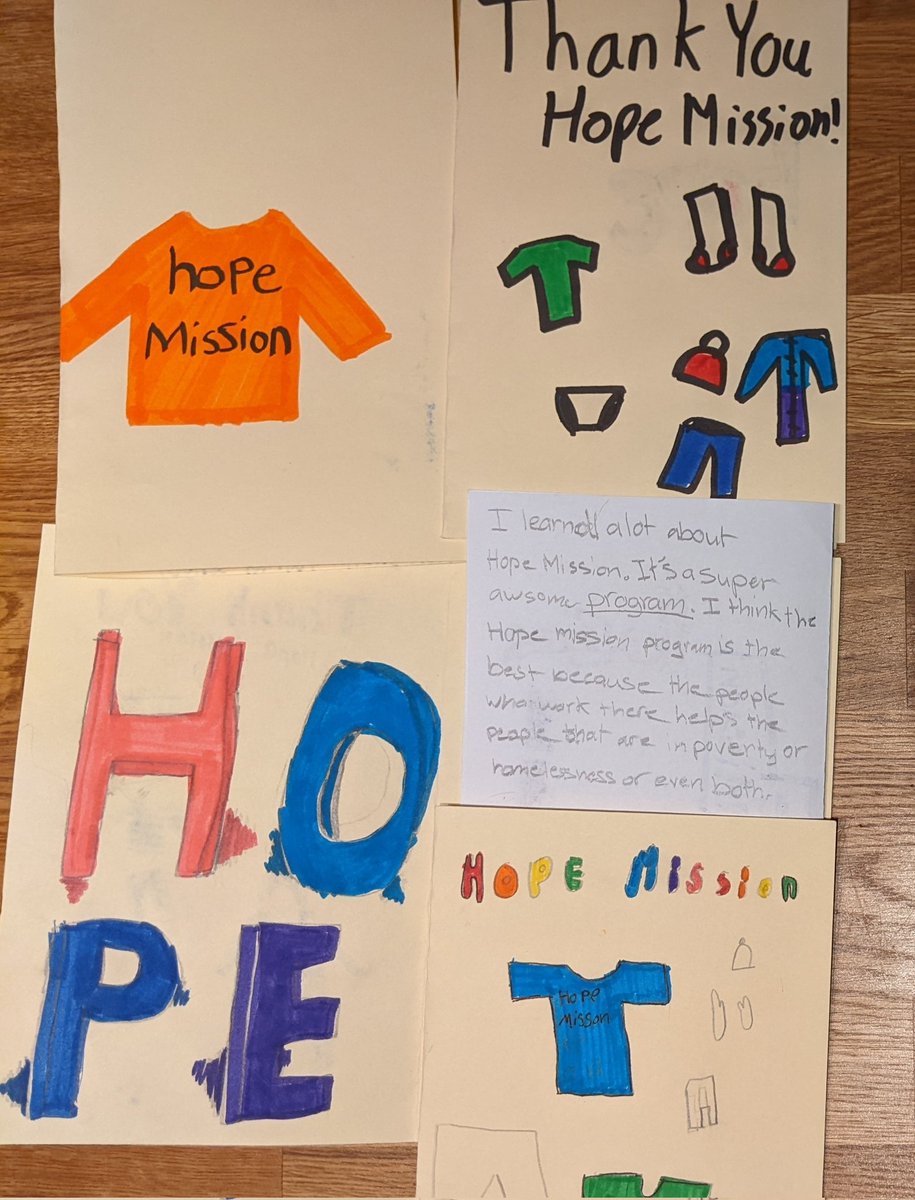 hope
Mission
Thank You
Hope Mission!
I learned a lot about
Hope Mission. It's a super
awsome program. I think the
Hope mission program is the
best because the people
who work there helps the
people that are in poverty or
homelessness or even both.
HO
PE
HOPE Mission
Hope
Misson